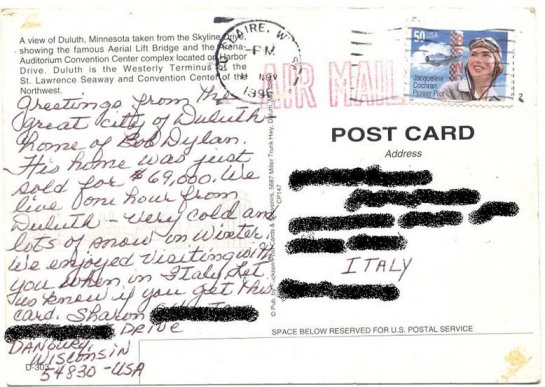 A view of Duluth, Minnesota taken from the Skyline Drive,
showing the famous Aerial Lift Bridge and the Arena-
Auditorium Convention Center complex located on Harbor
Drive. Duluth is the Westerly Terminus of the
St. Lawrence Seaway and Convention Center of the
Northwest.
Greetings from the
great city of Duluth
home of Bob Dylan.
His home was just
sold for $69,000. We
live one hour from
Duluth - very cold and
lots of snow in Winter.
We enjoyed visiting with
you when in Italy. Let
us know if you get this
card. Sharon
DRIVE
DANBURY,
WISCONSIN
54830-USA
D-303
CLAIRE, W
PM
NOV
AIR MAIL
50 USA
Jacqueline
Cochran
Pioneer Pilot
POST CARD
Address
ITALY
SPACE BELOW RESERVED FOR U.S. POSTAL SERVICE